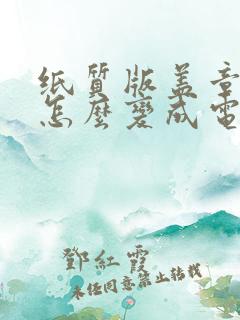 纸质版盖章
怎麼變成電
鄧紅霞
未经同意禁止转载